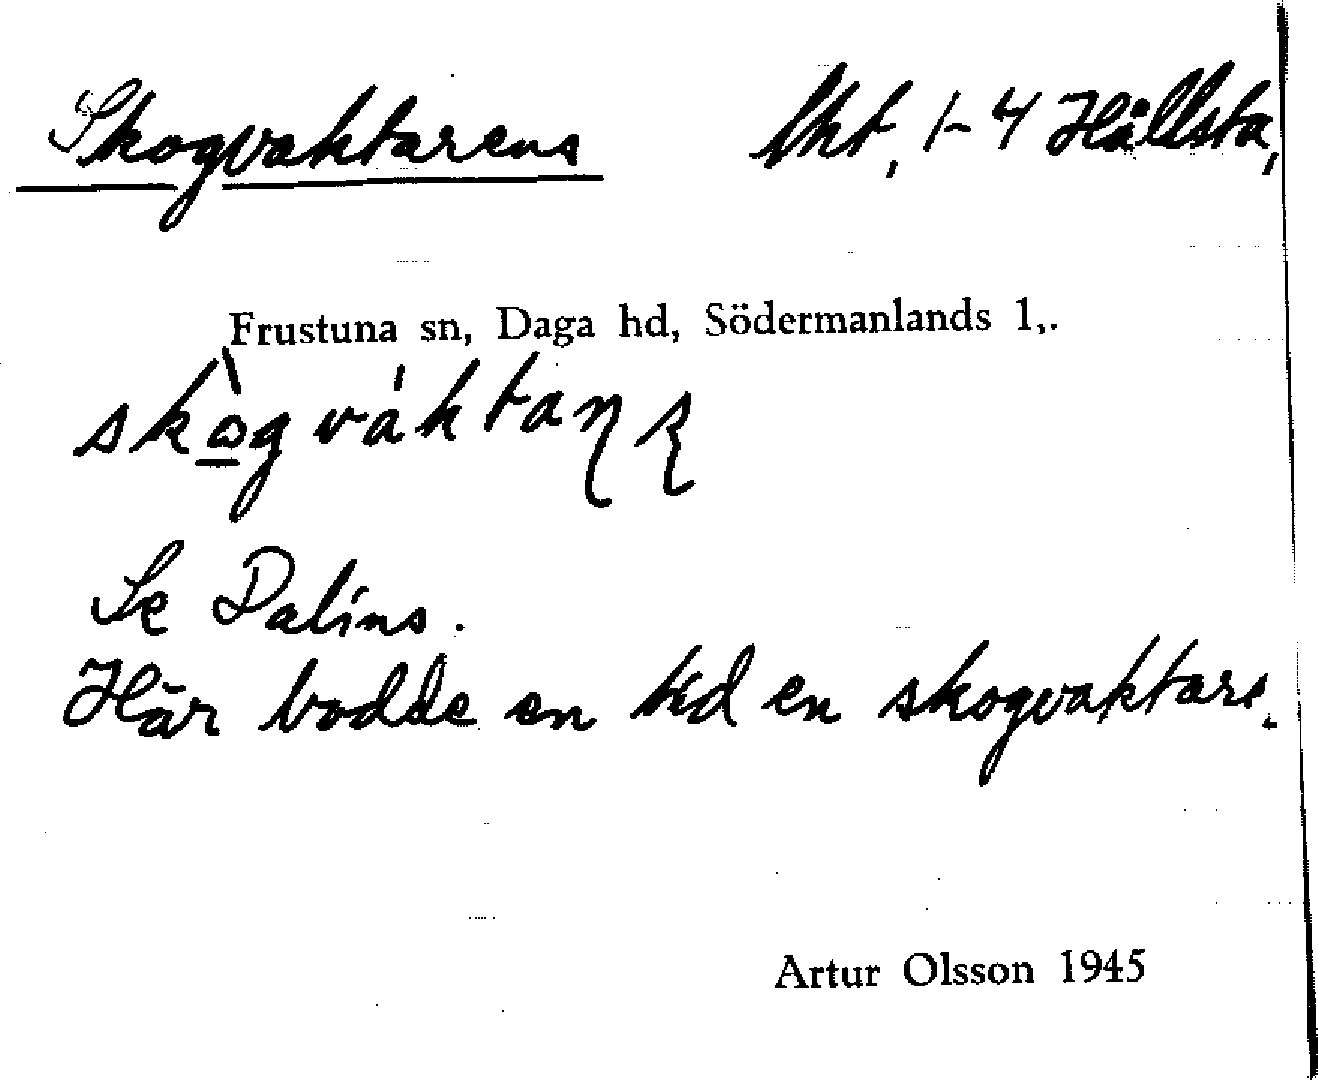 Skogvaktarens lht, 1-4 Hållsta,
Frustuna sn, Daga hd, Södermanlands l,.
skògváktaɳʂ
Se Dalins.
Här bodde en tid en skogvaktare.
Artur Olsson 1945